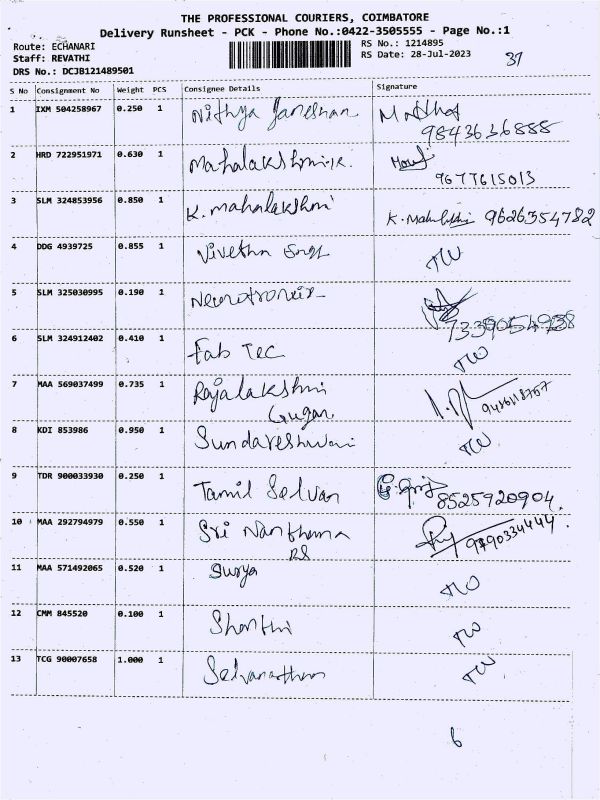 THE PROFESSIONAL COURIERS, COIMBATORE
Delivery Runsheet - PCK - Phone No.:0422-3505555 - Page No.:1
Route: ECHANARI RS No.: 1214895
Staff: REVATHI RS Date: 28-Jul-2023 31
DRS No.: DCJB121489501
S No Consignment No Weight PCS Consignee Details Signature
1 IXM 504258967 0.250 1 Nithya Janeshan
9843636888
2 HRD 722951971 0.630 1 Mahalakshmi.K.
9677615013
3 SLM 324853956 0.850 1 K. Mahalakshmi K. Mahalakshmi 9626354782
4 DDG 4939725 0.855 1 Vivetha
5 SLM 325030995 0.190 1
7339054938
6 SLM 324912402 0.410 1 Fab Tec
7 MAA 569037499 0.735 1 Rajalakshmi
Gugan 9486118767
8 KDI 853986 0.950 1 Sundareshwari
9 TDR 900033930 0.250 1 Tamil Selvan
8525920904.
10 MAA 292794979 0.550 1 Sri Nanthana 9790334444.
RS
11 MAA 571492065 0.520 1 Surya
12 CMM 845520 0.100 1 Shanthi
13 TCG 90007658 1.000 1
6